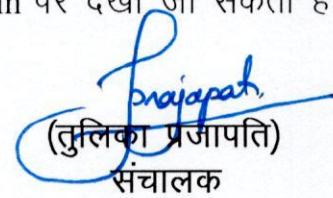 पर देखा जा सकता है
Prajapati
(तुलिका प्रजापति)
संचालक